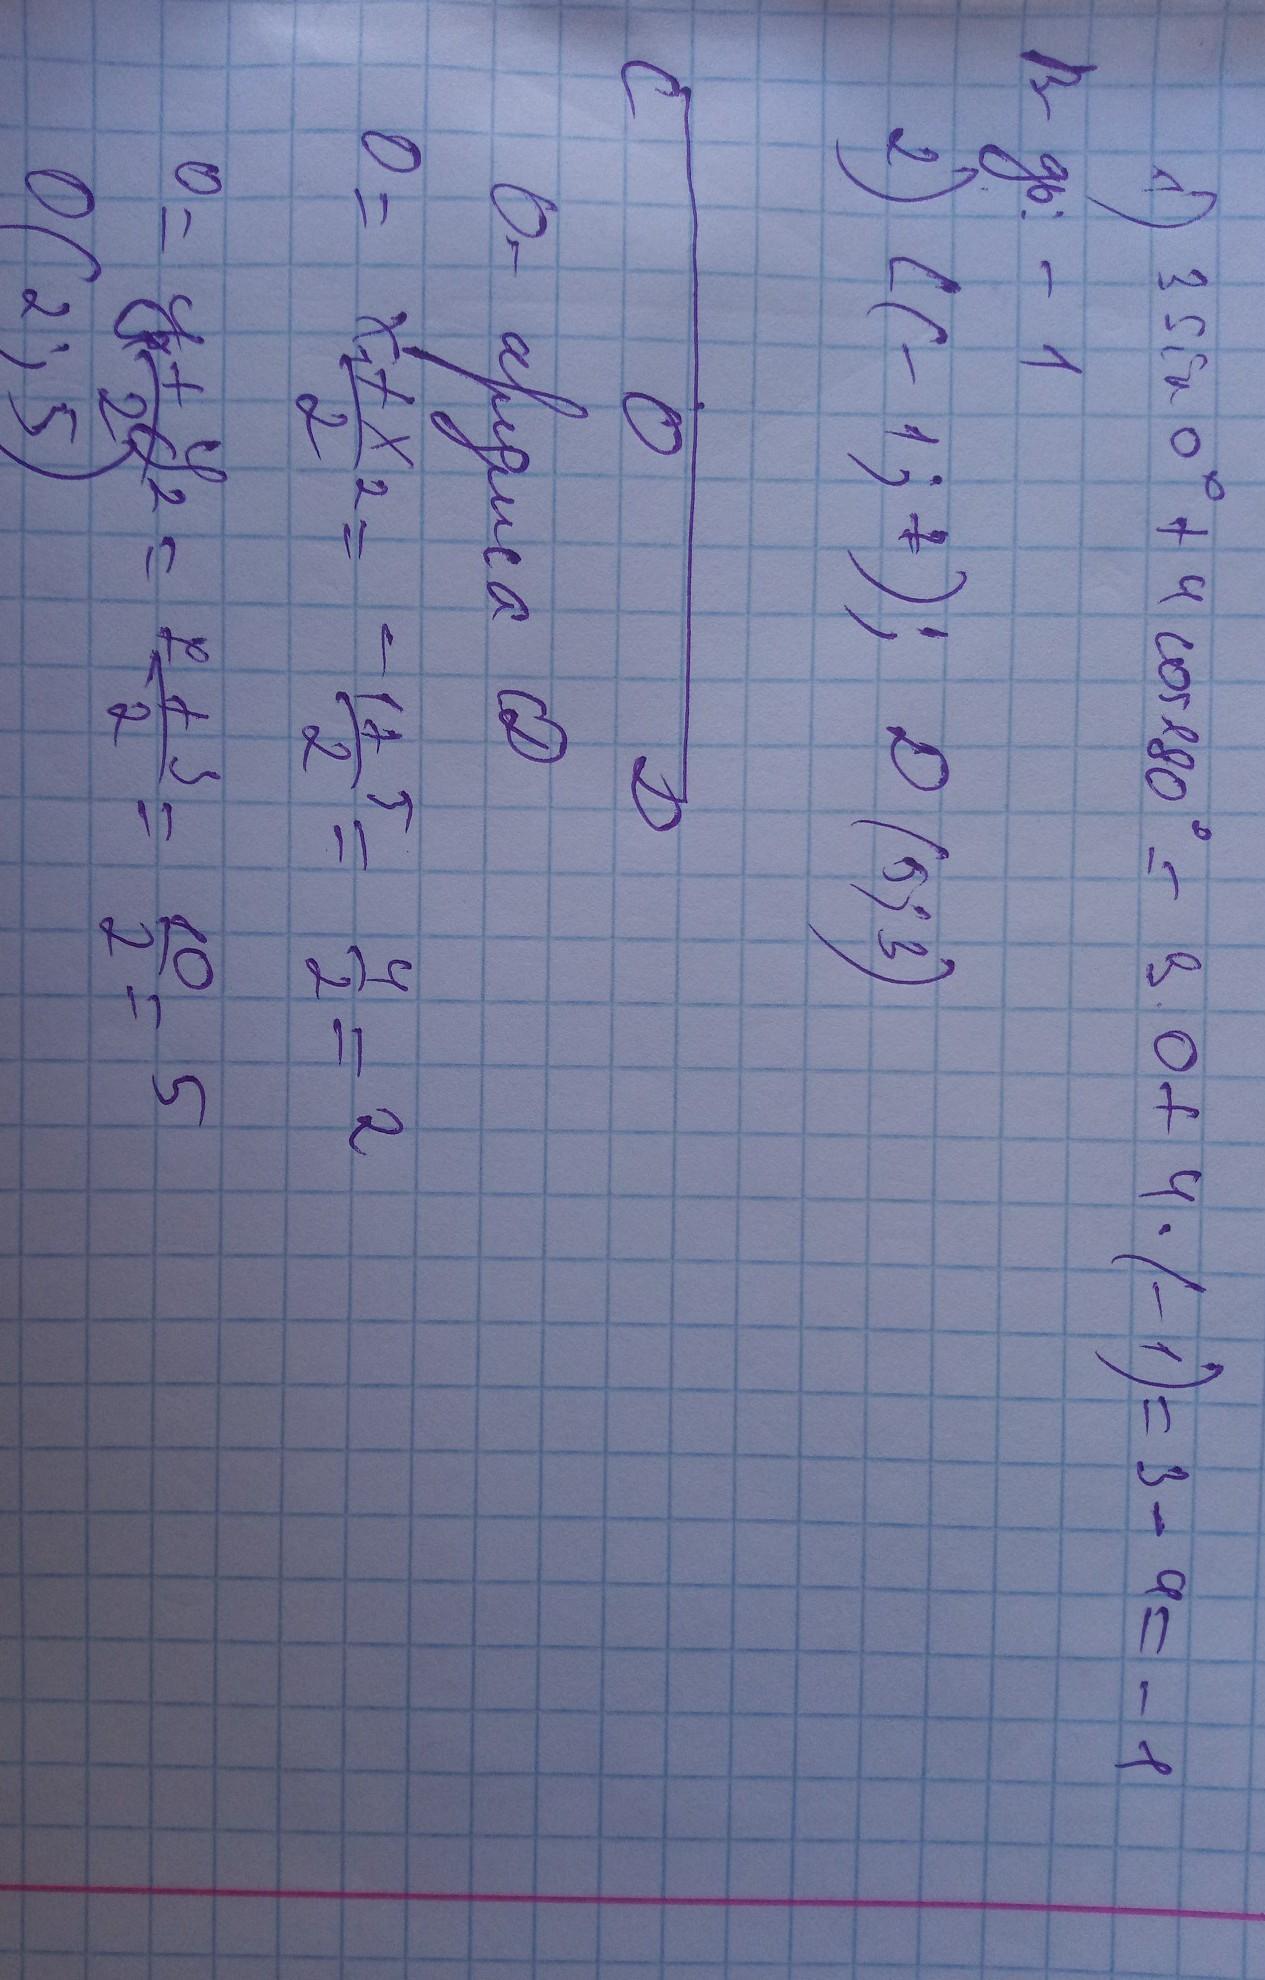 1) 3 sin 0° + 4 cos 180° = 3·0 + 4·(-1) = 3 - 4 = -1
: -1
2) C(-1; 7); D(5; 3)
C O D
O - CD
O = x₁ + x₂ / 2 = -1 + 5 / 2 = 4/2 = 2
O = y + y₂ / 2 = 7 + 3 / 2 = 10/2 = 5
O(2; 5)